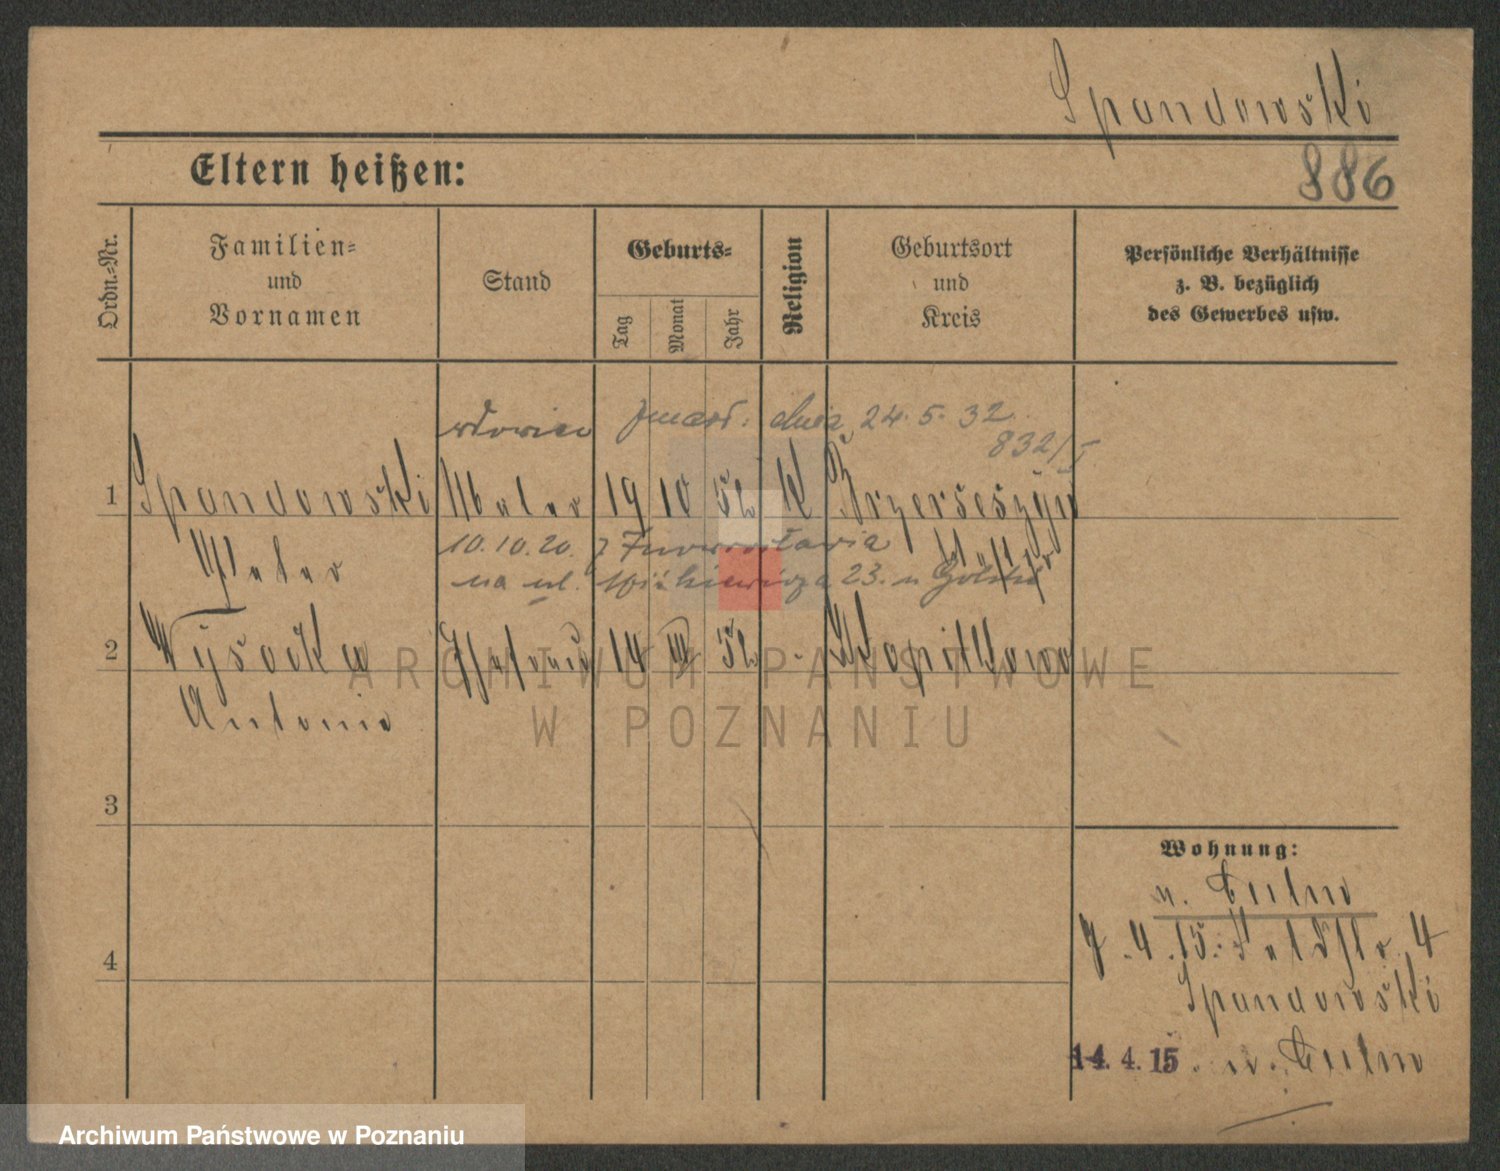 Spandowski
886
Eltern heißen:
Ordn.-Nr.
Familien-
und
Vornamen
Stand
Geburts-
Tag
Monat
Jahr
Religion
Geburtsort
und
Kreis
Persönliche Verhältnisse
z. B. bezüglich
des Gewerbes usw.
wdowiec zmarł: dnia 24. 5. 32
832/I
1 Spandowski Maler 19 10 52 K
Peter 10.10.20. z Inowrocławia
na ul. 23.
2 Wysocka Ehefrau 14 III 52 -
Antonie
3
4
Wohnung:
n. Culm
7.4.15. Feldstr. 4
Spandowski
14. 4. 15. n. Culm
ARCHIWUM PAŃSTWOWE
W POZNANIU
Archiwum Państwowe w Poznaniu